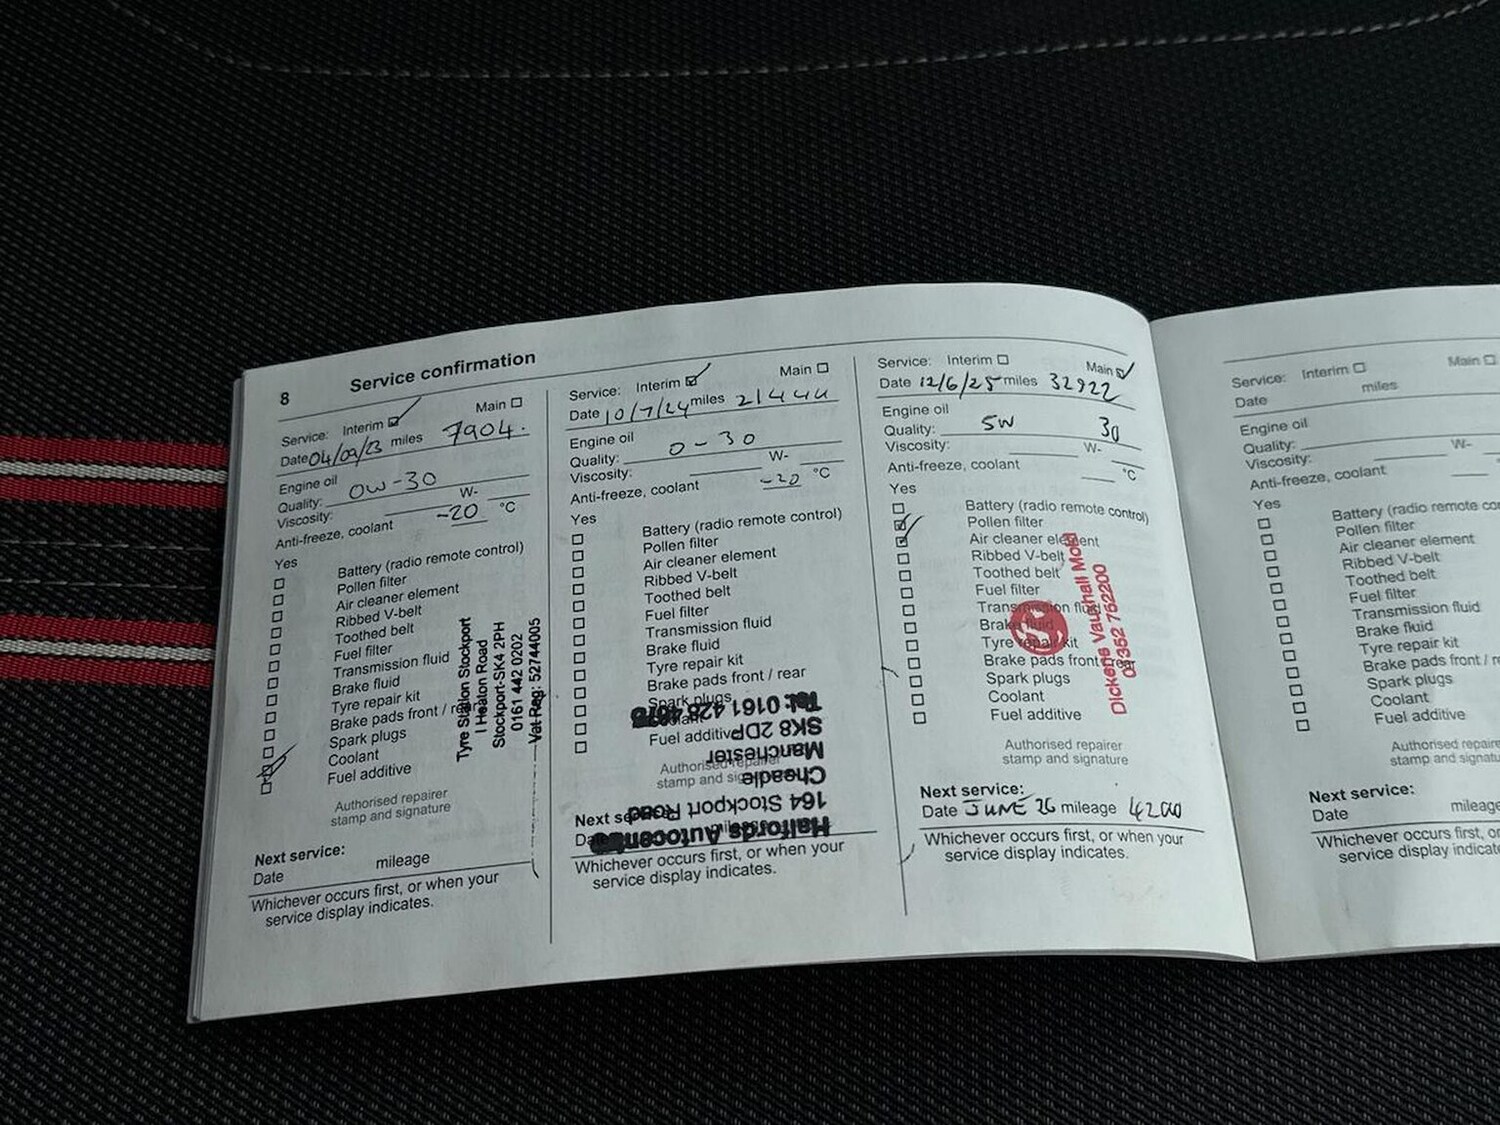 8
Service confirmation
Service: Interim Main
Date 04/09/23 miles 7904.
Engine oil
Quality: 0W-30
Viscosity: W-
Anti-freeze, coolant -20 °C
Yes
Battery (radio remote control)
Pollen filter
Air cleaner element
Ribbed V-belt
Toothed belt
Fuel filter
Transmission fluid
Brake fluid
Tyre repair kit
Brake pads front / rear
Spark plugs
Coolant
Fuel additive
Tyre Station Stockport
1 Heaton Road
Stockport-SK4 2PH
0161 442 0202
Vat Reg: 52744005
Authorised repairer
stamp and signature
Next service:
Date mileage
Whichever occurs first, or when your
service display indicates.
Service: Interim Main
Date 10/7/24 miles 21444
Engine oil
Quality: 0-30
Viscosity: W-
Anti-freeze, coolant -20 °C
Yes
Battery (radio remote control)
Pollen filter
Air cleaner element
Ribbed V-belt
Toothed belt
Fuel filter
Transmission fluid
Brake fluid
Tyre repair kit
Brake pads front / rear
Spark plugs
Fuel additive
Halfords Autocentre
164 Stockport Road
Cheadle
Manchester
SK8 2DP
Tel: 0161 428
Authorised repairer
stamp and
Next service:
Whichever occurs first, or when your
service display indicates.
Service: Interim Main
Date 12/6/25 miles 32922
Engine oil
Quality: 5W 30
Viscosity: W-
Anti-freeze, coolant °C
Yes
Battery (radio remote control)
Pollen filter
Air cleaner element
Ribbed V-belt
Toothed belt
Fuel filter
Transmission fluid
Brake fluid
Tyre repair kit
Brake pads front / rear
Spark plugs
Coolant
Fuel additive
Dickens Vauxhall Mold
01352 752200
Authorised repairer
stamp and signature
Next service:
Date JUNE 26 mileage 42000
Whichever occurs first, or when your
service display indicates.
Service: Interim Main
Date miles
Engine oil
Quality:
Viscosity: W-
Anti-freeze, coolant
Yes
Battery (radio remote
Pollen filter
Air cleaner element
Ribbed V-belt
Toothed belt
Fuel filter
Transmission fluid
Brake fluid
Tyre repair kit
Brake pads front /
Spark plugs
Coolant
Fuel additive
Authorised
stamp and
Next service:
Date mileage
Whichever occurs first,
service display